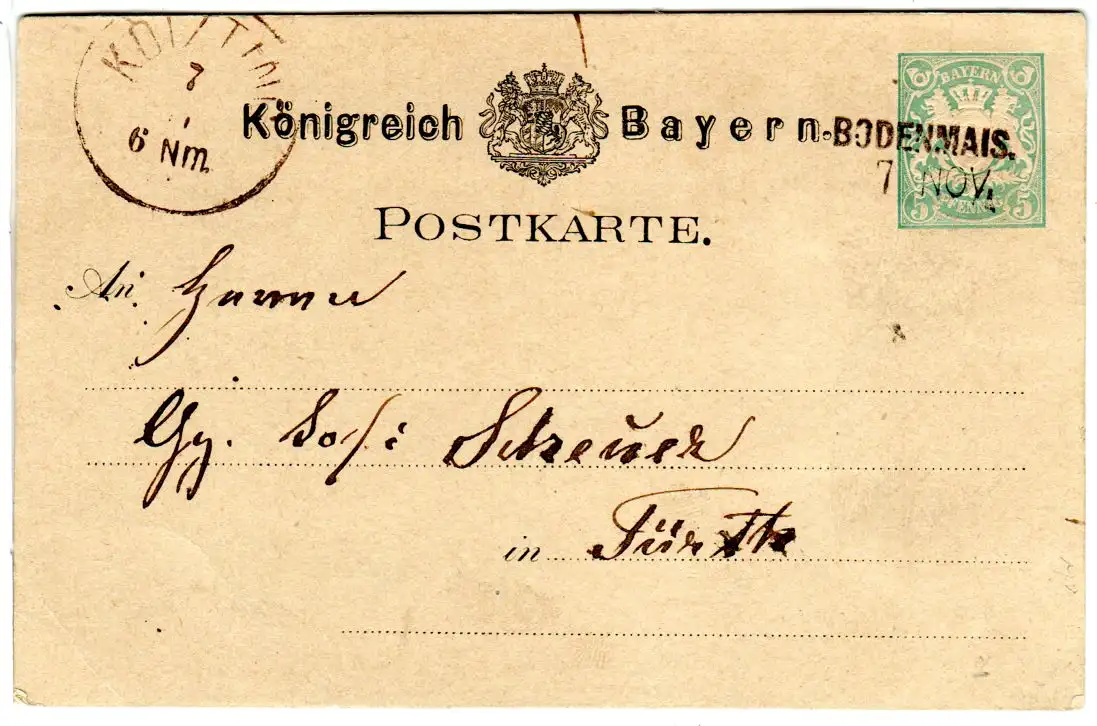 KÖTZTING
7
6 Nm.
Königreich Bayern.
BAYERN
BODENMAIS.
7 NOV.
5 PFENNIG 5
POSTKARTE.
An Herrn
Gg. Jos: Scheuer
in Fürth